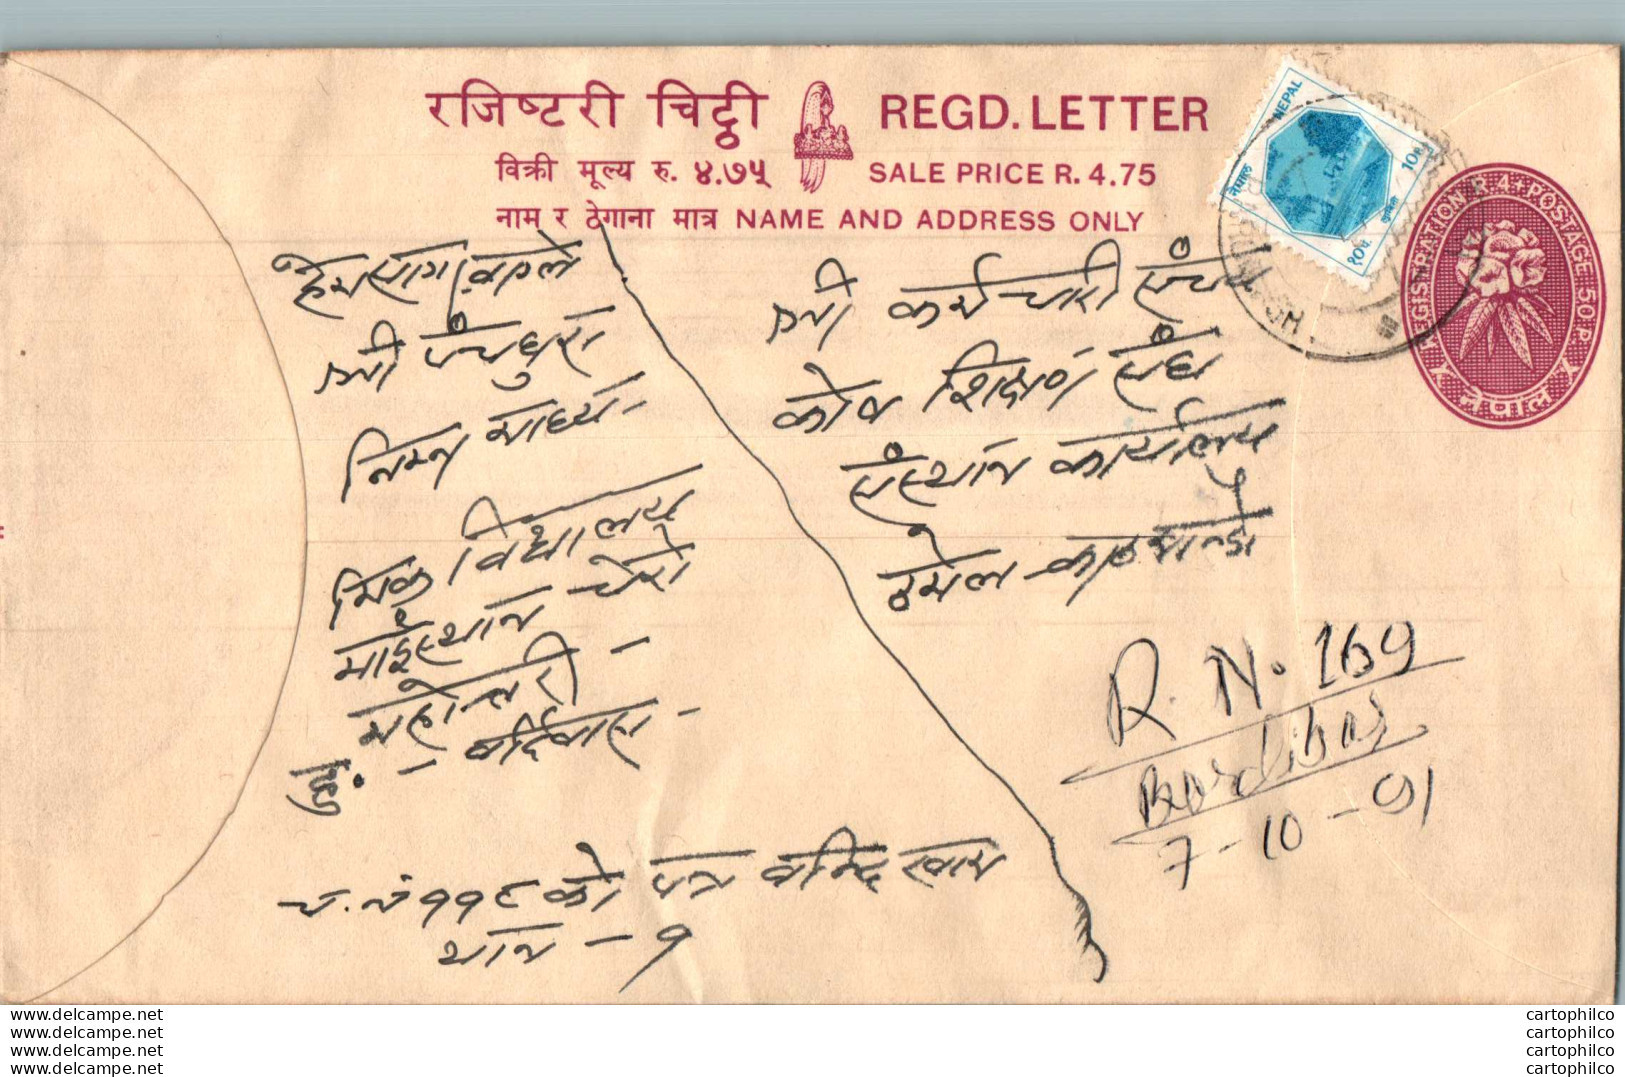 रजिष्टरी चिट्ठी REGD. LETTER
विक्री मूल्य रु. ४.७५ SALE PRICE R. 4.75
नाम र ठेगाना मात्र NAME AND ADDRESS ONLY
NEPAL
नेपाल
10P.
१०पै.
REGISTRATION R. 4 + POSTAGE 50 P.
नेपाल
श्री पंचधुरा
निम्न माध्य-
मिक विद्यालय
माईस्थान
महोत्तरी -
हु. - बर्दिवास -
च.नं ११९ को पत्र बन्दि खाम
थान - १
श्री कर्मचारी संचय
कोष शिक्षण संघ
संस्थान कार्यालय
ठमेल काठमाण्डौ
R. N. 169
Bardibas
7-10-91
www.delcampe.net
www.delcampe.net
www.delcampe.net
www.delcampe.net
cartophilco
cartophilco
cartophilco
cartophilco